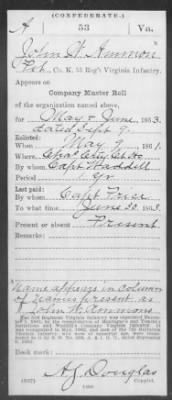 (CONFEDERATE.)
A 53 Va.
John W. Ammon
Pvt, Co. K, 53 Reg't Virginia Infantry.
Appears on
Company Muster Roll
of the organization named above,
for May & June, 1863.
dated Sept 9.
Enlisted:
When May 9, 1861.
Where Chas City Ct Ho
By whom Capt Waddill
Period 1 yr
Last paid:
By whom Capt Price
To what time June 30, 1863.
Present or absent Present
Remarks:
Name appears in column
of names present as
John W. Ammons.
Book mark:
A. J. Douglas
Copyist.